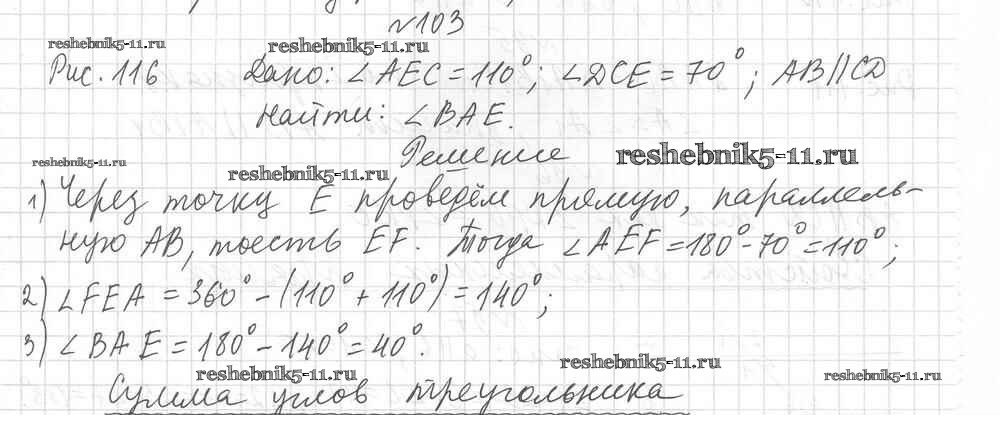 №103
reshebnik5-11.ru reshebnik5-11.ru
Рис. 116 Дано: ∠AEC = 110°; ∠DCE = 70°; AB // CD
Найти: ∠BAE.
Решение
reshebnik5-11.ru
reshebnik5-11.ru reshebnik5-11.ru
1) Через точку E проведём прямую, параллель-
ную AB, тоесть EF. Тогда ∠AEF = 180° - 70° = 110°;
2) ∠FEA = 360° - (110° + 110°) = 140°;
3) ∠BAE = 180° - 140° = 40°.
reshebnik5-11.ru reshebnik5-11.ru reshebnik5-11.ru
Сумма углов треугольника